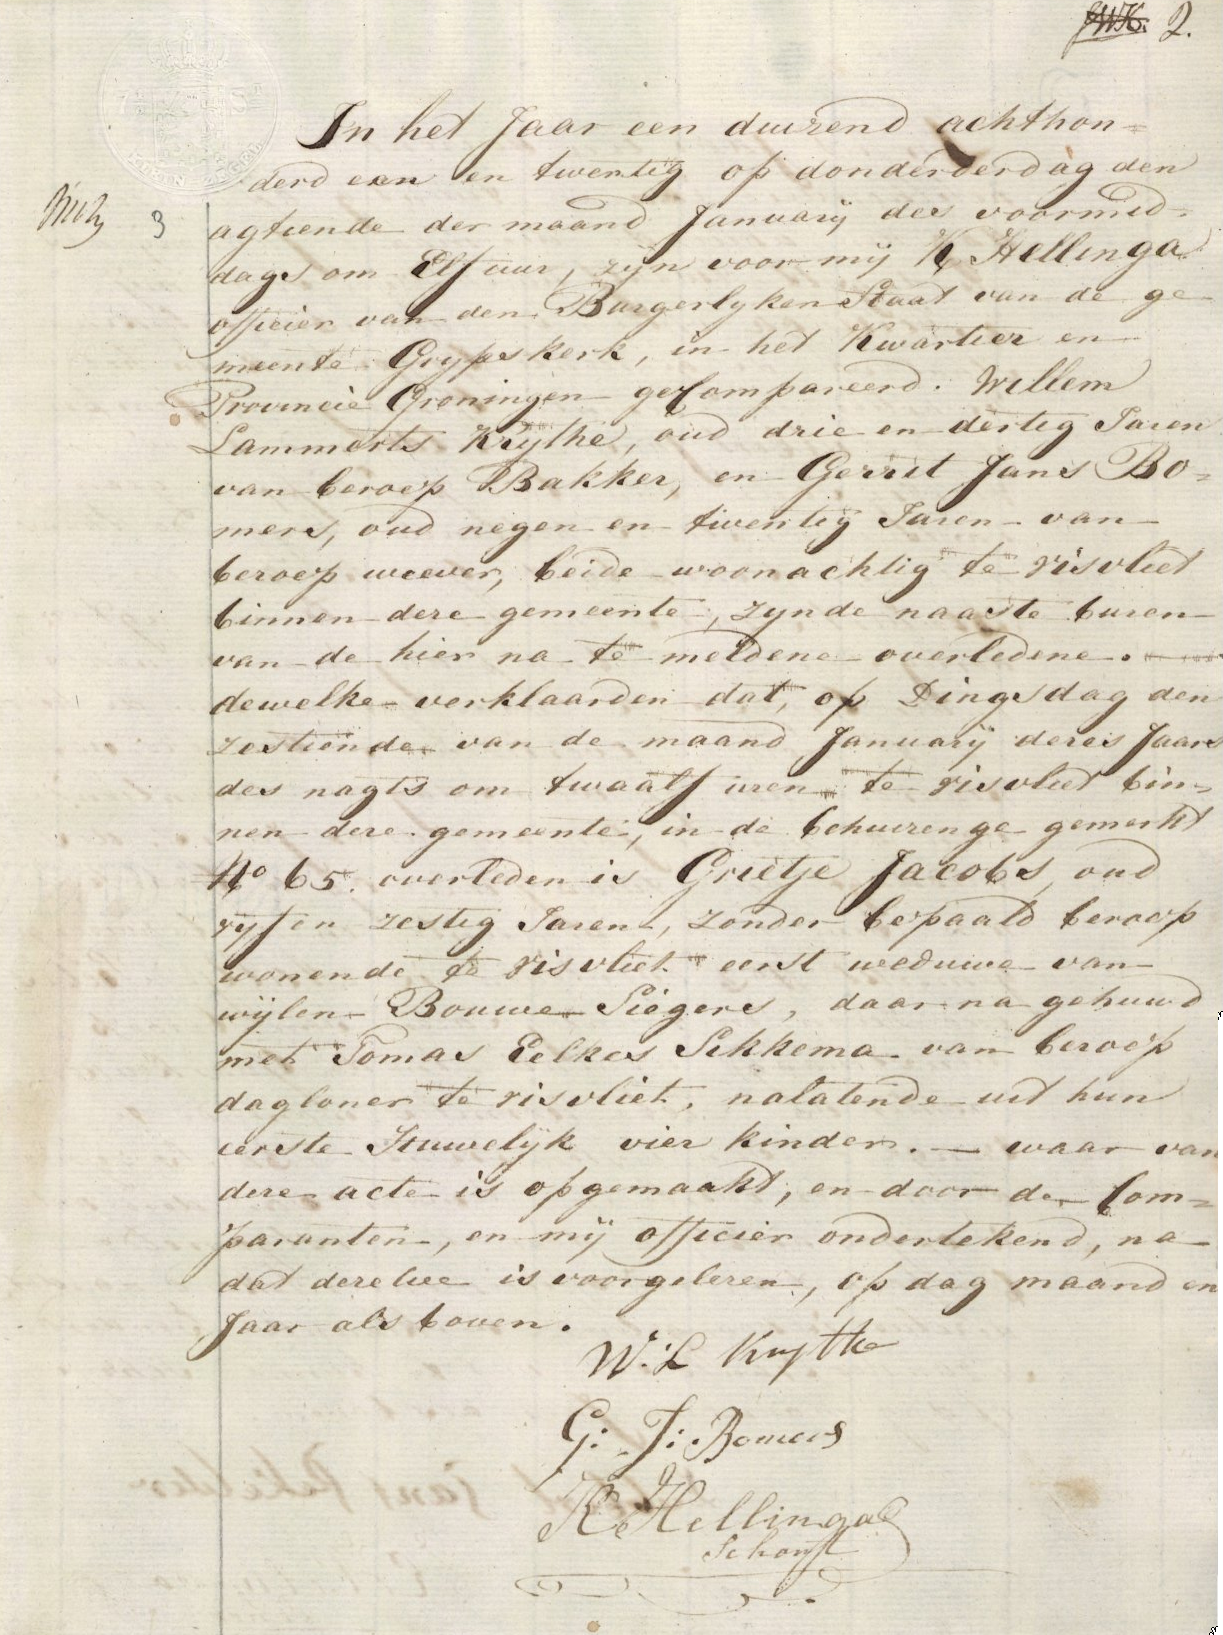 2.
In het Jaar een duizend achthon=
derd een en twentig op donderderdag den
3
agtiende der maand Januarij des voormid=
dags om Elf uur, zyn voor mij K Hellinga
officier van den Burgerlyken Staat van de ge
meente Grypskerk, in het Kwartier en
Provincie Groningen geCompareerd. Willem
Lammerts Krijthe, oud drie en dertig Jaren
van beroep Bakker, en Gerrit Jans Bo=
mers, oud negen en twentig Jaren van
beroep weever, beide woonachtig te visvliet
binnen deze gemeente, zynde naaste buren
van de hier na te meldene overledene.
dewelke verklaarden dat, op Dingsdag den
zestiende van de maand Januarij dezes Jaars
des nagts om twaalf uren te visvliet bin=
nen deze gemeente, in de behuizenge gemerkt
No 65. overleden is Grietje Jacobs, oud
vyf en zestig Jaren, zonder bepaald beroep
wonende te visvliet eerst weduwe van
wijlen Bouwe Siegers, daar na gehuwd
met Tomas Eelkes Sikkema van beroep
dagloner te visvliet, nalatende uit hun
eerste Huwelyk vier kinder. — waar van
deze acte is opgemaakt, en door de Com=
paranten, en mij officier ondertekend, na
dat dezelve is voorgelezen, op dag maand en
Jaar als boven.
W: L Krythe
G: J: Bomers
K Hellinga
Schout